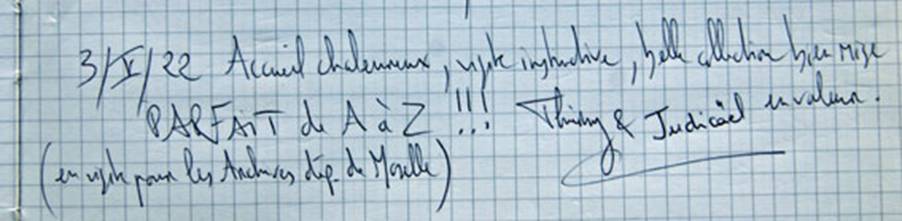 3/V/22 Accueil chaleureux, visite instructive, belle collection bien mise
PARFAIT de A à Z !!! Thierry & Judicaël en valeur.
(en visite pour les Archives dép. de Moselle)